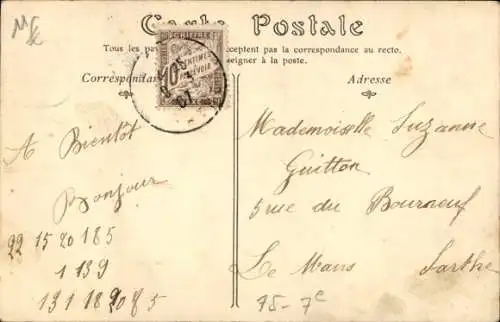 Mc
Carte Postale
Tous les pays acceptent pas la correspondance au recto.
seigner à la poste.
Correspondan
Adresse
CHIFFRE
10 CENTIMES
A PERCEVOIR
TAXE
A Bientôt
Bonjour
22 15 20 18 5
1 13 9
13 1 18 20 8 5
Mademoiselle Suzanne
Guitton
5 rue du Bourneuf
Le Mans Sarthe
75-7c